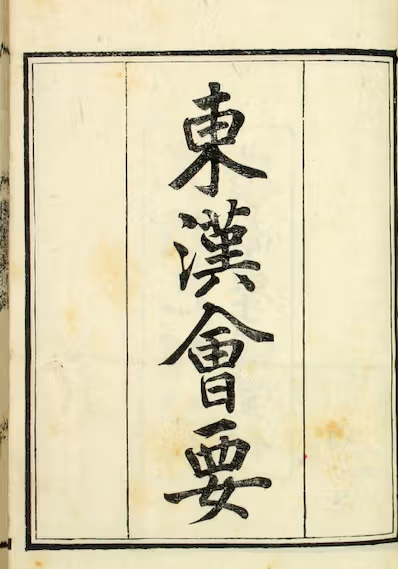 東漢會要